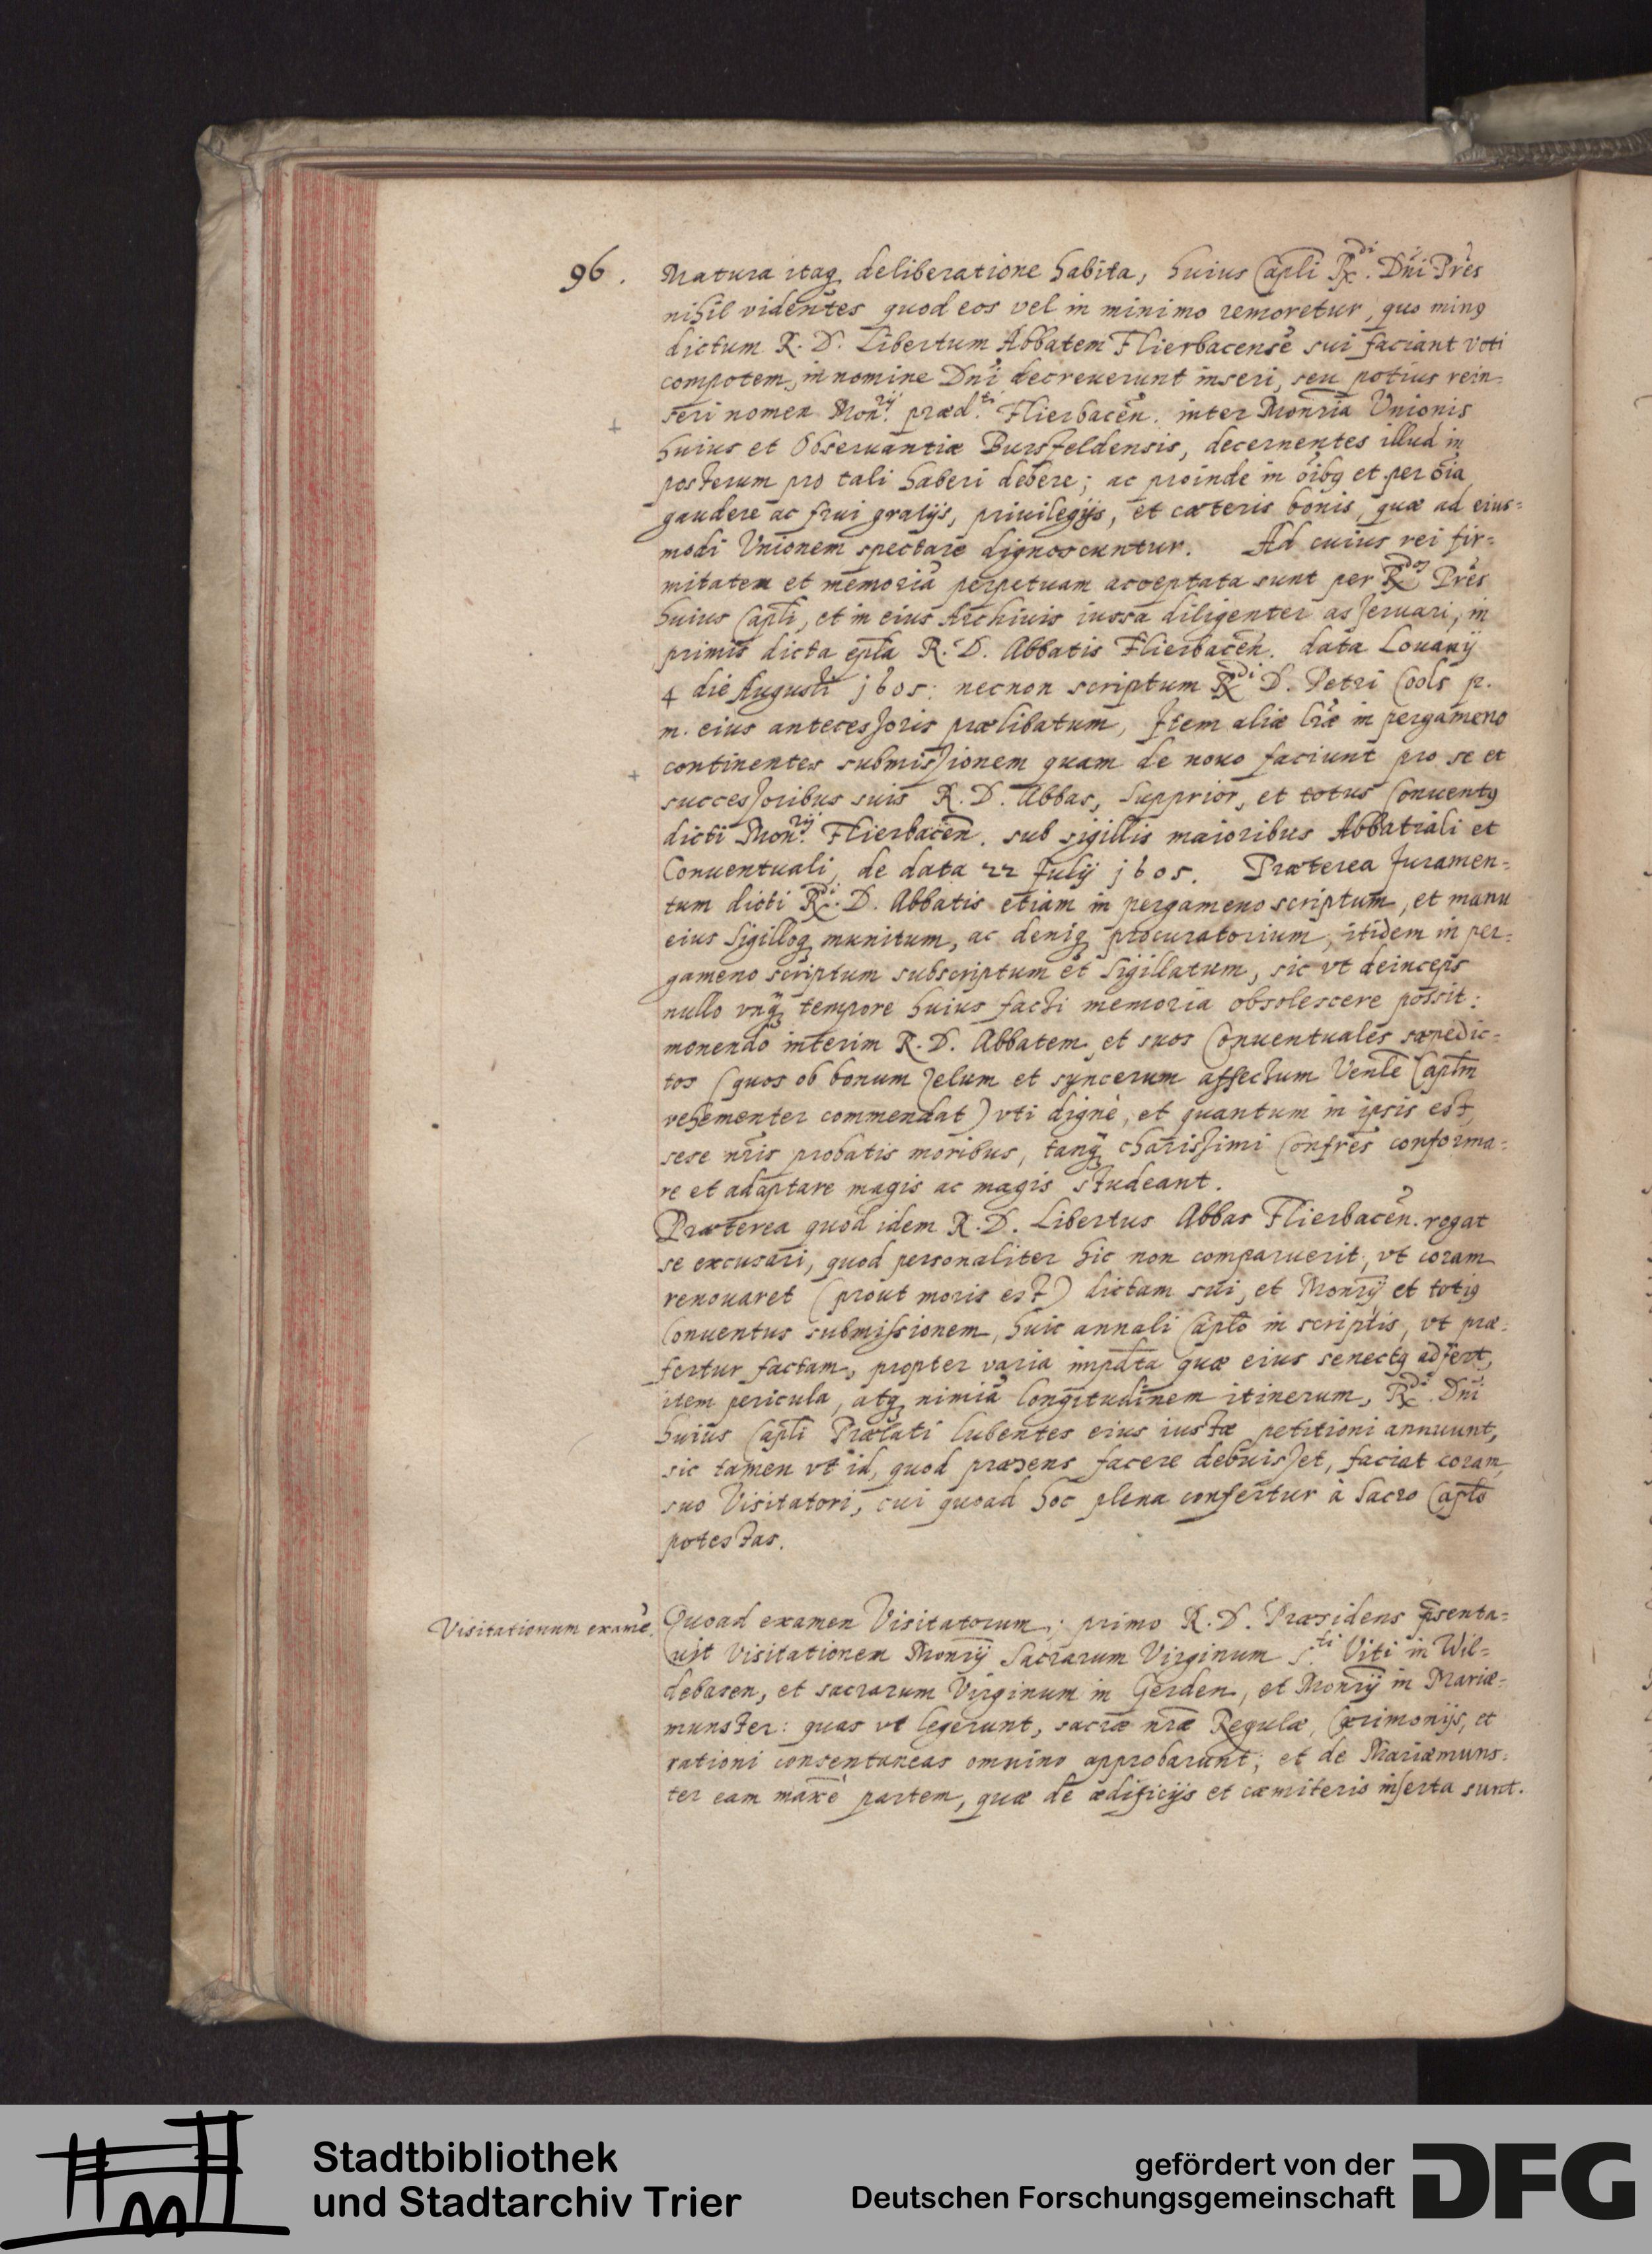 96. Matura itaq, deliberatione habita, huius Capli Rx.di Dñi Pres
nihil videntes quod eos vel in minimo remoretur, quo ming
dictum R. D. Libertum Abbatem Flierbacensē sui faciant voti
compotem, in nomine Dni decreuerunt inseri, seu potius rein-
seri nomen Monrij. præd.ti Flierbacen. inter Monria Vnionis
huius et Obseruantiæ Bursfeldensis, decernentes illud in
posterum pro tali haberi debere; ac proinde in oibg et per oia
gaudere ac frui gratijs, priuilegijs, et cæteris bonis, quæ ad eius=
modi Vnionem spectare dignoscuntur. Ad cuius rei fir=
mitatem et memoriā perpetuam acceptata sunt per Rdos Pres
huius Capli, et in eius Archiuis iussa diligenter asseruari, in
primis dicta epla R. D. Abbatis Flierbacen. data Louanij
4 die Augusti j605: necnon scriptum Rdi D. Petri Cools p.
m. eius antecessoris prælibatum, Item aliæ lræ in pergameno
continentes submissionem quam de nouo faciunt pro se et
successoribus suis R. D. Abbas, Supprior, et totus Conuentg
dicti Monrij. Flierbacen. sub sigillis maioribus Abbatiali et
Conuentuali, de data 22 Julij j605. Præterea Juramen=
tum dicti Rdi. D. Abbatis etiam in pergameno scriptum, et manu
eius Sigilloq, munitum, ac deniq, procuratorium, itidem in per=
gameno scriptum subscriptum et Sigillatum, sic vt deinceps
nullo vnq, tempore huius facti memoria obsolescere possit:
monendo interim R. D. Abbatem, et suos Conuentuales sæpedic=
tos (quos ob bonum zelum et syncerum affectum Venle Caplm
vehementer commendat) vti dignè, et quantum in ipsis est,
sese nris probatis moribus, tanq, charissimi Confres conforma=
re et adaptare magis ac magis studeant.
Præterea quod idem R. D. Libertus Abbas Flierbacen. rogat
se excusari, quod personaliter hic non comparuerit, vt coram
renouaret (prout moris est) dictam sui, et Monrij et totig
Conuentus submissionem, huic annali Caplo in scriptis, vt præ=
fertur factam, propter varia impdta quæ eius senectg adfert,
item pericula, atq, nimiā longitudinem itinerum, Rdi. Dni
huius Capli Prælati lubentes eius iustæ petitioni annuunt,
sic tamen vt id, quod præsens facere debuisset, faciat coram
suo Visitatori, cui quoad hoc plena confertur à Sacro Caplo
potestas.
Visitationum examē.
Quoad examen Visitatorum; primo R. D. Præsidens psenta=
uit Visitationem Monrij Sacrarum Virginum S.ti Viti in Wil=
debasen, et sacrarum Virginum in Gerden, et Monrij in Mariæ=
munster: quas vt legerunt, sacræ nræ Regulæ, Cærimonijs, et
rationi consentaneas omnino approbarunt; et de Mariæmuns=
ter eam maxē partem, quæ de ædificijs et cæmiteris inserta sunt.
Stadtbibliothek
und Stadtarchiv Trier
gefördert von der
Deutschen Forschungsgemeinschaft
DFG